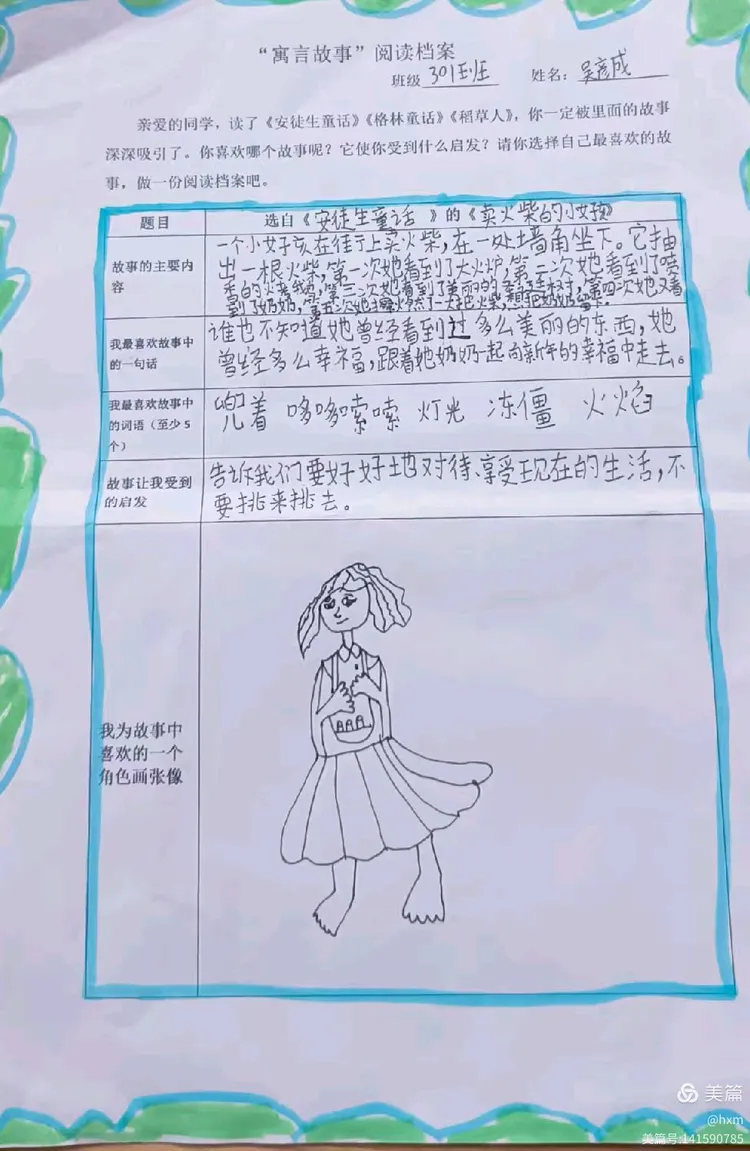 “寓言故事”阅读档案
班级 301班 姓名：吴彦成
亲爱的同学，读了《安徒生童话》《格林童话》《稻草人》，你一定被里面的故事
深深吸引了。你喜欢哪个故事呢？它使你受到什么启发？请你选择自己最喜欢的故
事，做一份阅读档案吧。
题目
选自《安徒生童话 》的《卖火柴的小女孩》
故事的主要内
容
一个小女孩在街上卖火柴，在一处墙角坐下。它抽
出一根火柴，第一次她看到了大火炉，第二次她看到了喷
香的火，第三次她看到了美丽的圣诞树，第四次她又看
到了奶奶，第五次她一大把火柴，想把奶奶留下。
我最喜欢故事中
的一句话
谁也不知道她曾经看到过多么美丽的东西，她
曾经多么幸福，跟着她奶奶一起向新年的幸福中走去。
我最喜欢故事中
的词语（至少5
个）
兜着 哆哆嗦嗦 灯光 冻僵 火焰
故事让我受到
的启发
告诉我们要好好地对待、享受现在的生活，不
要挑来挑去。
我为故事中
喜欢的一个
角色画张像
美篇
@hxm
美篇号:141590785